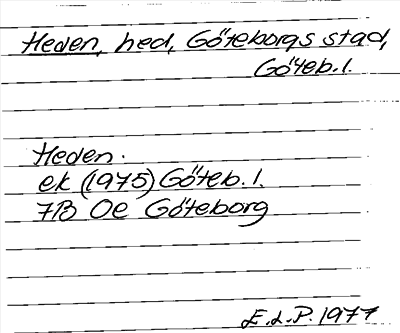 Heden, hed, Göteborgs stad,
Göteb. l.
Heden.
ek (1975) Göteb. l.
7B Oe Göteborg
E.L.P. 1977